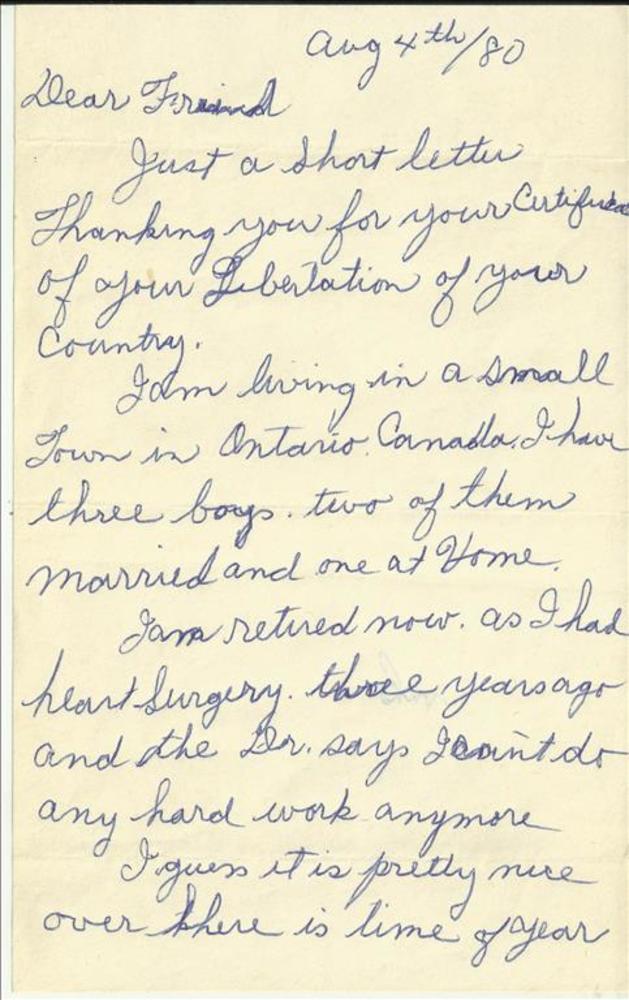 Aug 4th/80
Dear Friend
Just a short letter
Thanking you for your Certificate
of your Libertation of your
Country.
I am living in a small
Town in Ontario. Canada. I have
three boys. two of them
married and one at Home.
I am retired now. as I had
heart Surgery. three years ago
and the Dr. says I can't do
any hard work anymore
I guess it is pretty nice
over there is time of year